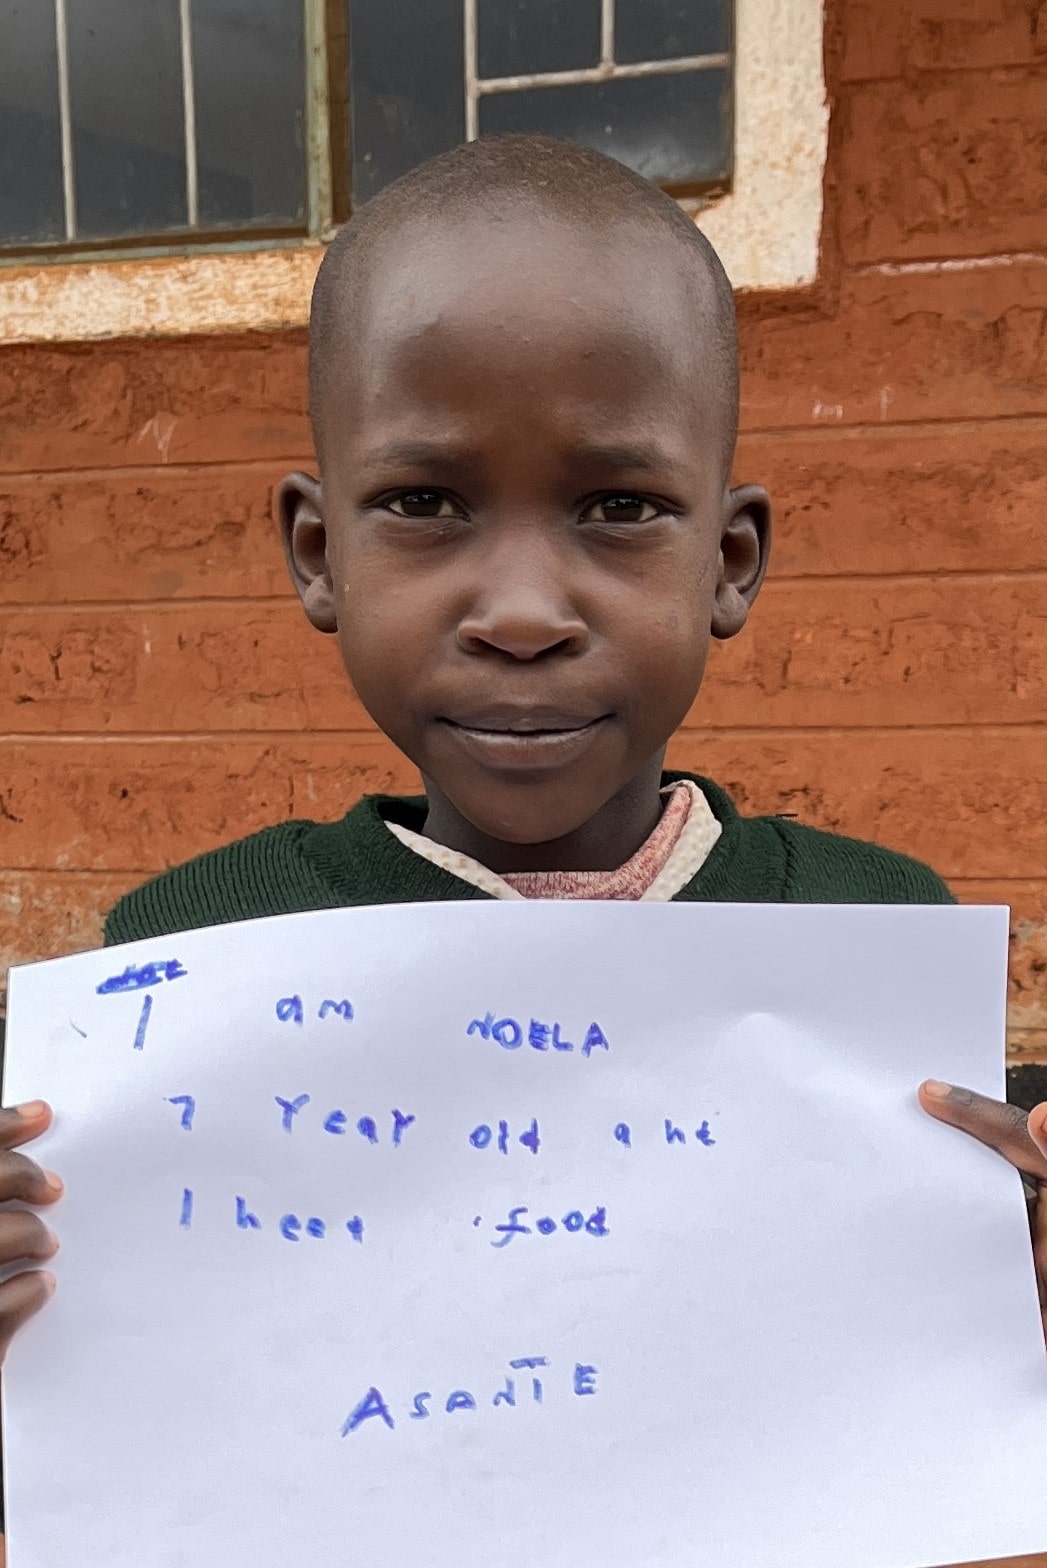 I am NOELA
7 Year old ahd
I heed food
ASANTE